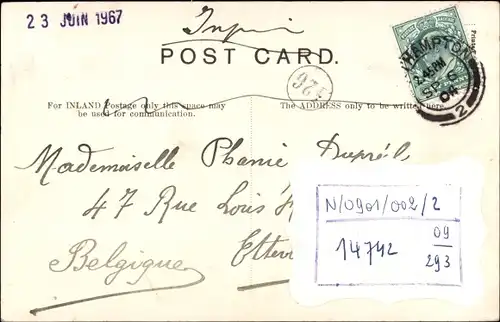 23 JUIN 1967
POST CARD.
HAMPTON
2.45 PM
SP 5
04
2
926
For INLAND Postage only this space may be used for communication.
The ADDRESS only to be written here.
Mademoiselle Phanie Dupréil
47 Rue Louis
Belgique
N/0901/002/2
14742
09
293